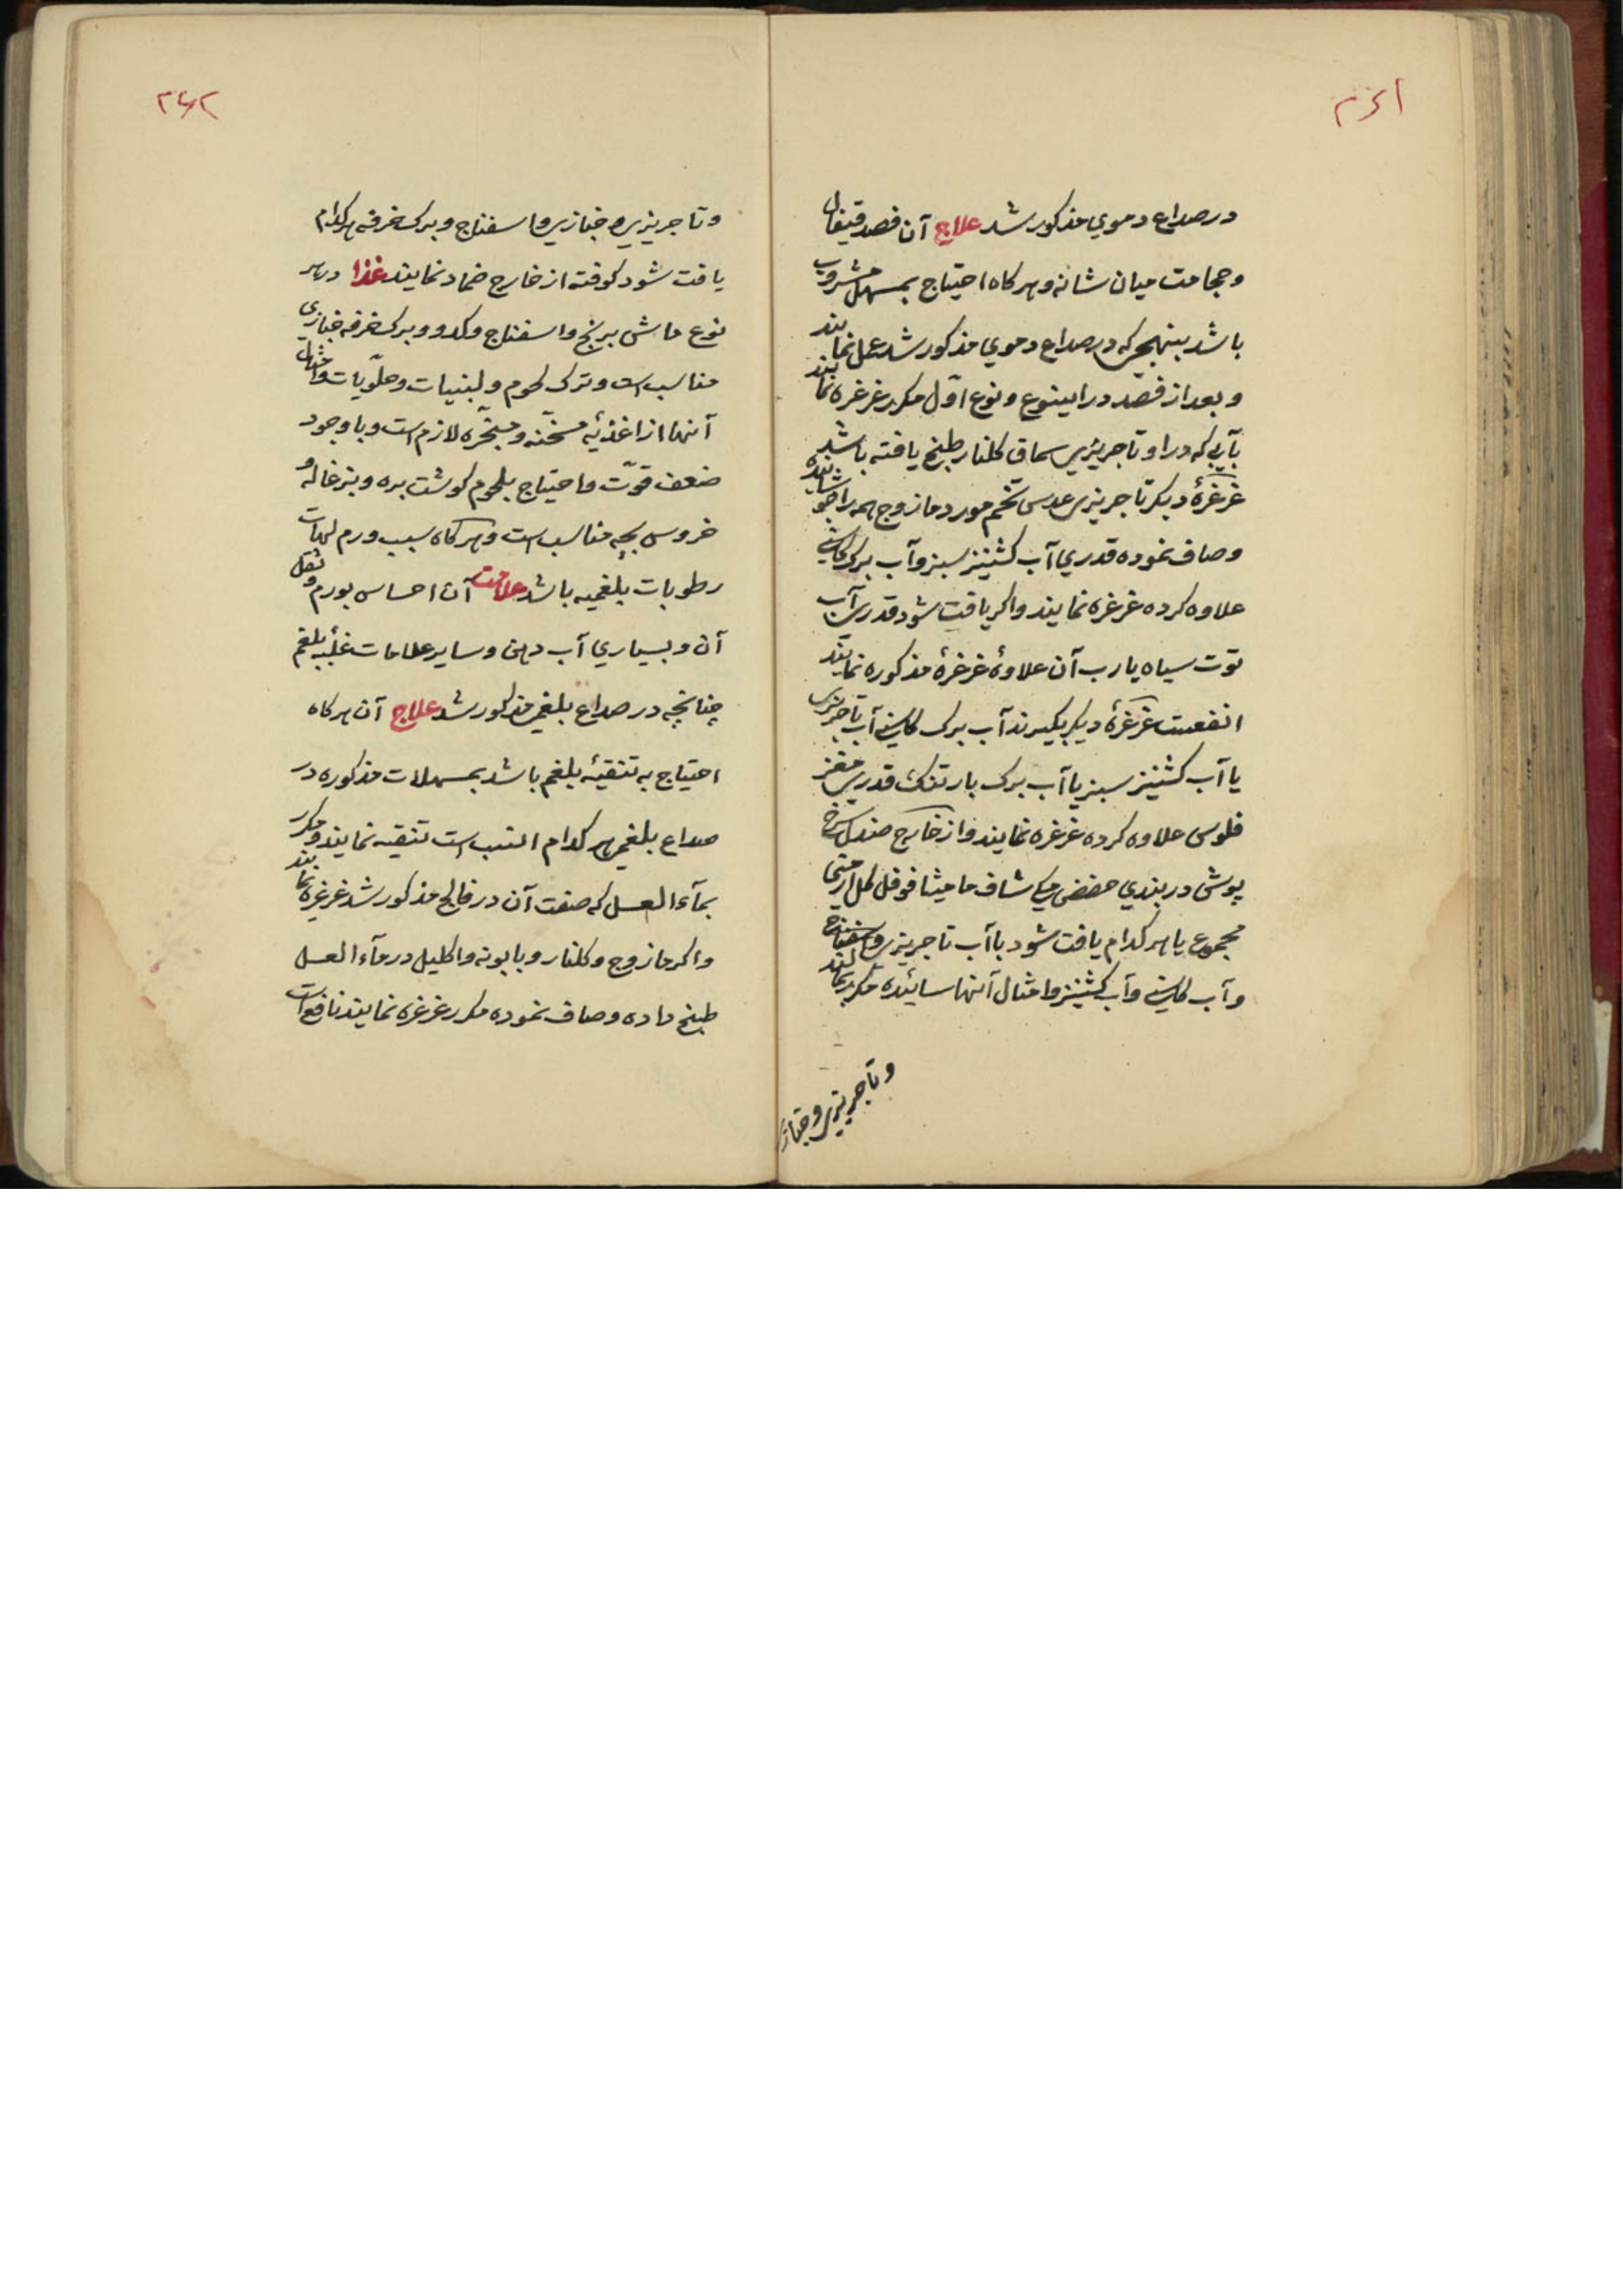 ۲۶۱
در صداع دموي مذکور شد علاج آن فصد قیفال
و حجامت میان شانه و هرکاه احتیاج بمسهل مشروب
باشد بنهجی که در صداع دموي مذکور شد عمل نمایند
و بعد از فصد در اینوع و نوع اوّل مکرر غرغره نمایند
بآبی که در او تاجریزی سماق کلنار طبخ یافته باشد
غرغرهٔ دیکر تاجریزی عدس تخم مورد مازوج همه را جوشانیده
و صاف نموده قدري آب کشنیز سبز و آب برک کاسنی
علاوه کرده غرغره نمایند و اکر یافت شود قدری آب
توت سیاه یا رب آن علاوهٔ غرغرهٔ مذکوره نمایند
انفعست غرغرهٔ دیکر بکیرند آب برک کاسنی آب تاجریزی
یا آب کشنیز سبز یا آب برک بارتنک قدری مغز
فلوس علاوه کرده غرغره نمایند و از خارج صندل سرخ
پوش دربندي حضض مکی شاف مامیثا فوفل کل ارمنی
مجموع یا هرکدام یافت شود با آب تاجریزی و اسفناج
و آب کاسنی و آب کشنیز و امثال آنها سائیده مکرر بمالند
و تاجریزی و خبازی
۲۶۲
و تاجریزی و خبازی و اسفناج و برک خرفه هرکدام
یافت شود کوفته از خارج ضماد نمایند غذا در هر
نوع ماش برنج و اسفناج و کدو و برک خرفه خبازی
مناسب است و ترک لحوم و لبنیات و حلویّات و امثال
آنها از اغذیه مسخّنه و مبخّره لازم است و با وجود
ضعف قوّت و احتیاج بلحوم کوشت بره و بزغاله و
خروس بچه مناسب است و هرکاه سبب ورم لهات
رطوبات بلغمیه باشد علامت آن احساس بورم و ثقل
آن و بسیاري آب دهن و سایر علامات غلبهٔ بلغم
چنانچه در صداع بلغمی مذکور شد علاج آن هرکاه
احتیاج به تنقیهٔ بلغم باشد بمسهلات مذکوره در
صداع بلغمی هرکدام انسب است تنقیه نمایند و مکرر
بمآء العسل که صفت آن در فالج مذکور شد غرغره نمایند
و اکر مازوج و کلنار و بابونه و اکلیل در مآء العسل
طبخ داده و صاف نموده مکرر غرغره نمایند نافع است